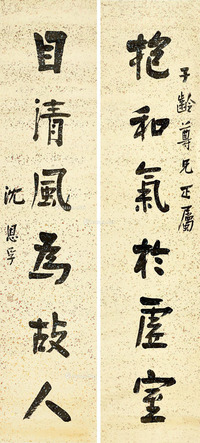 抱和氣於虛室
子齡尊兄正屬
目清風為故人
沈恩孚